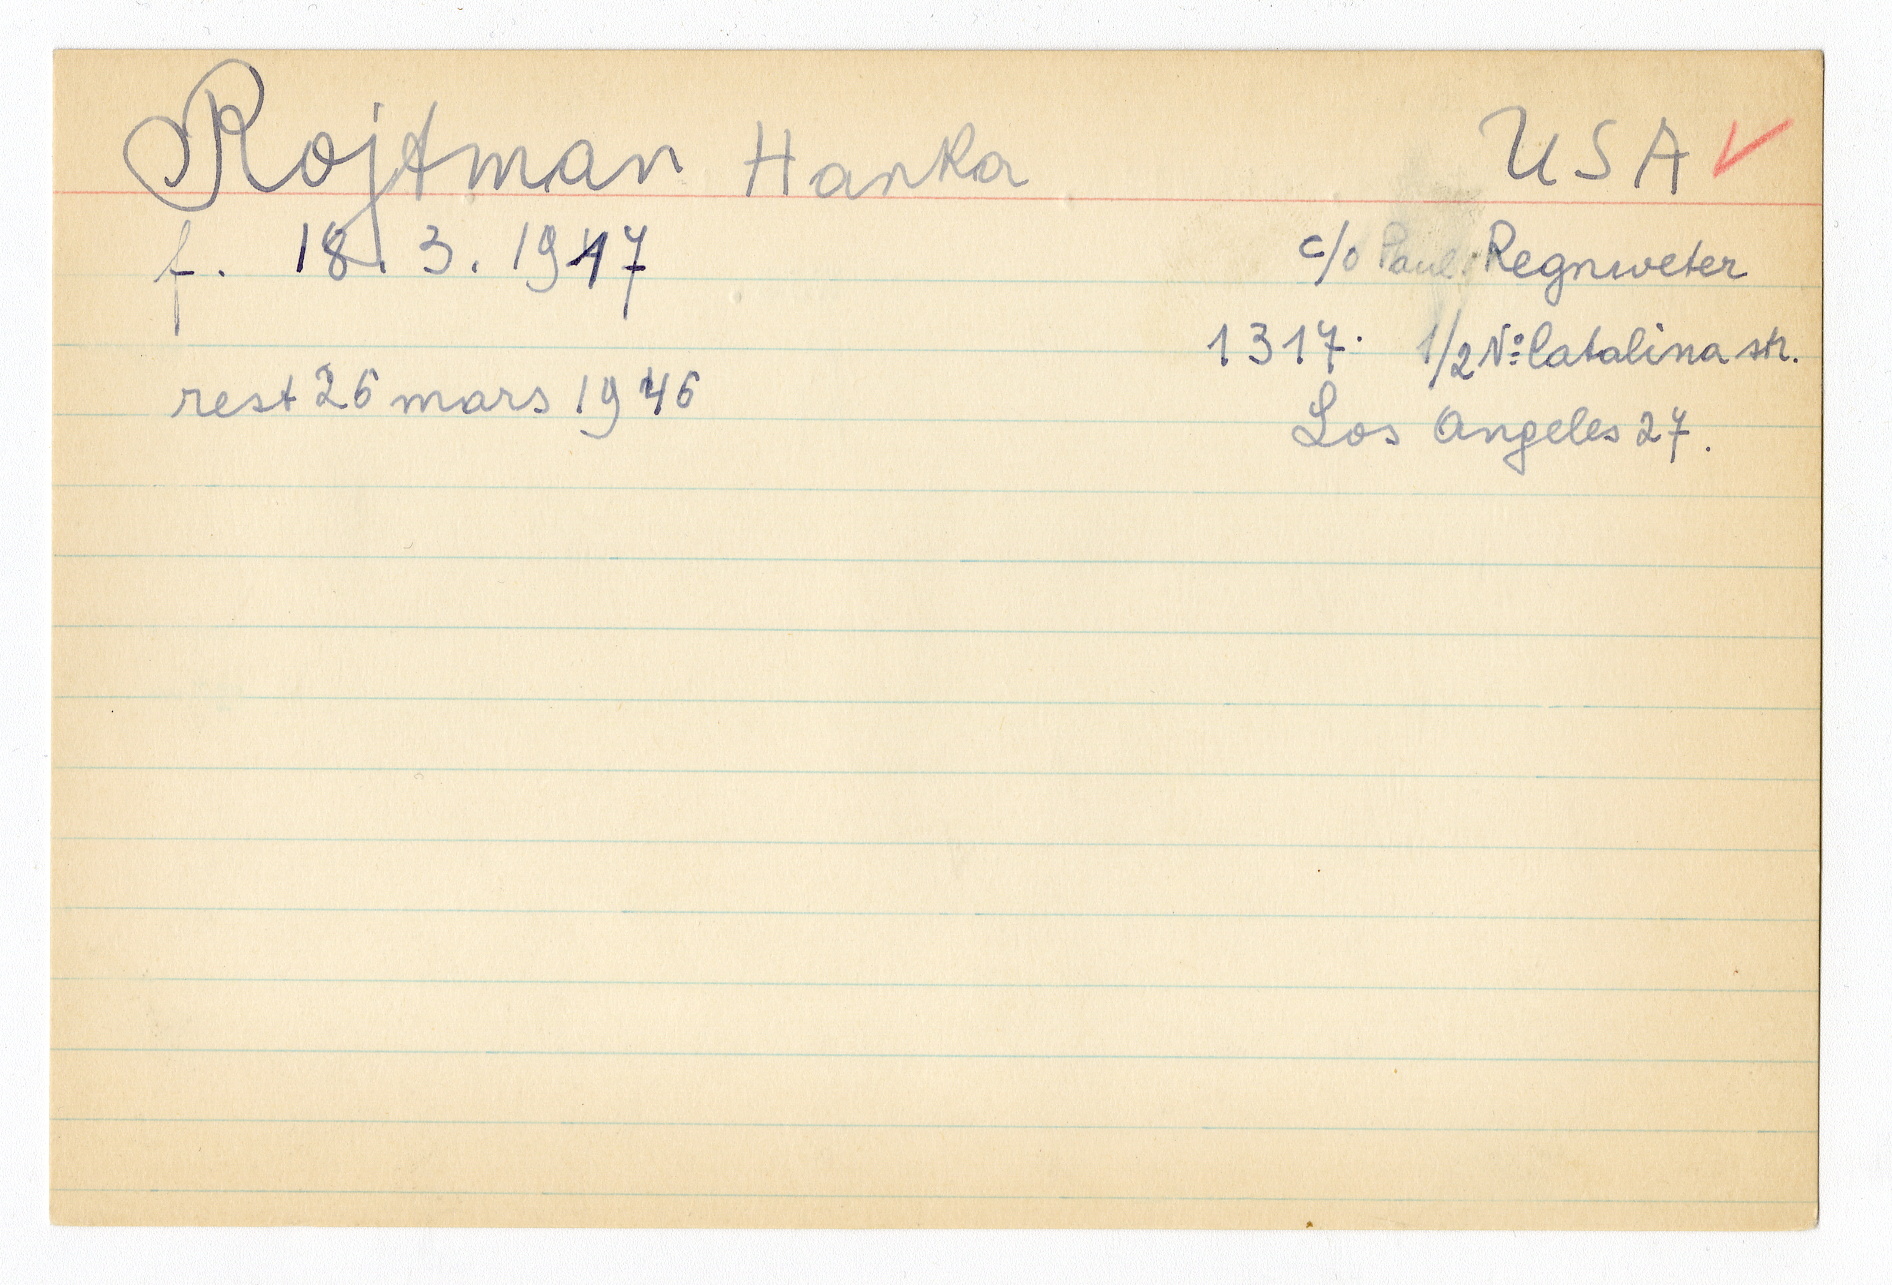 Rojtman Hanka USA ✓
f. 18. 3. 1917
c/o Paul Regnweter
1317. 1/2 Nº Catalina str.
rest 26 mars 1946
Los Angeles 27.